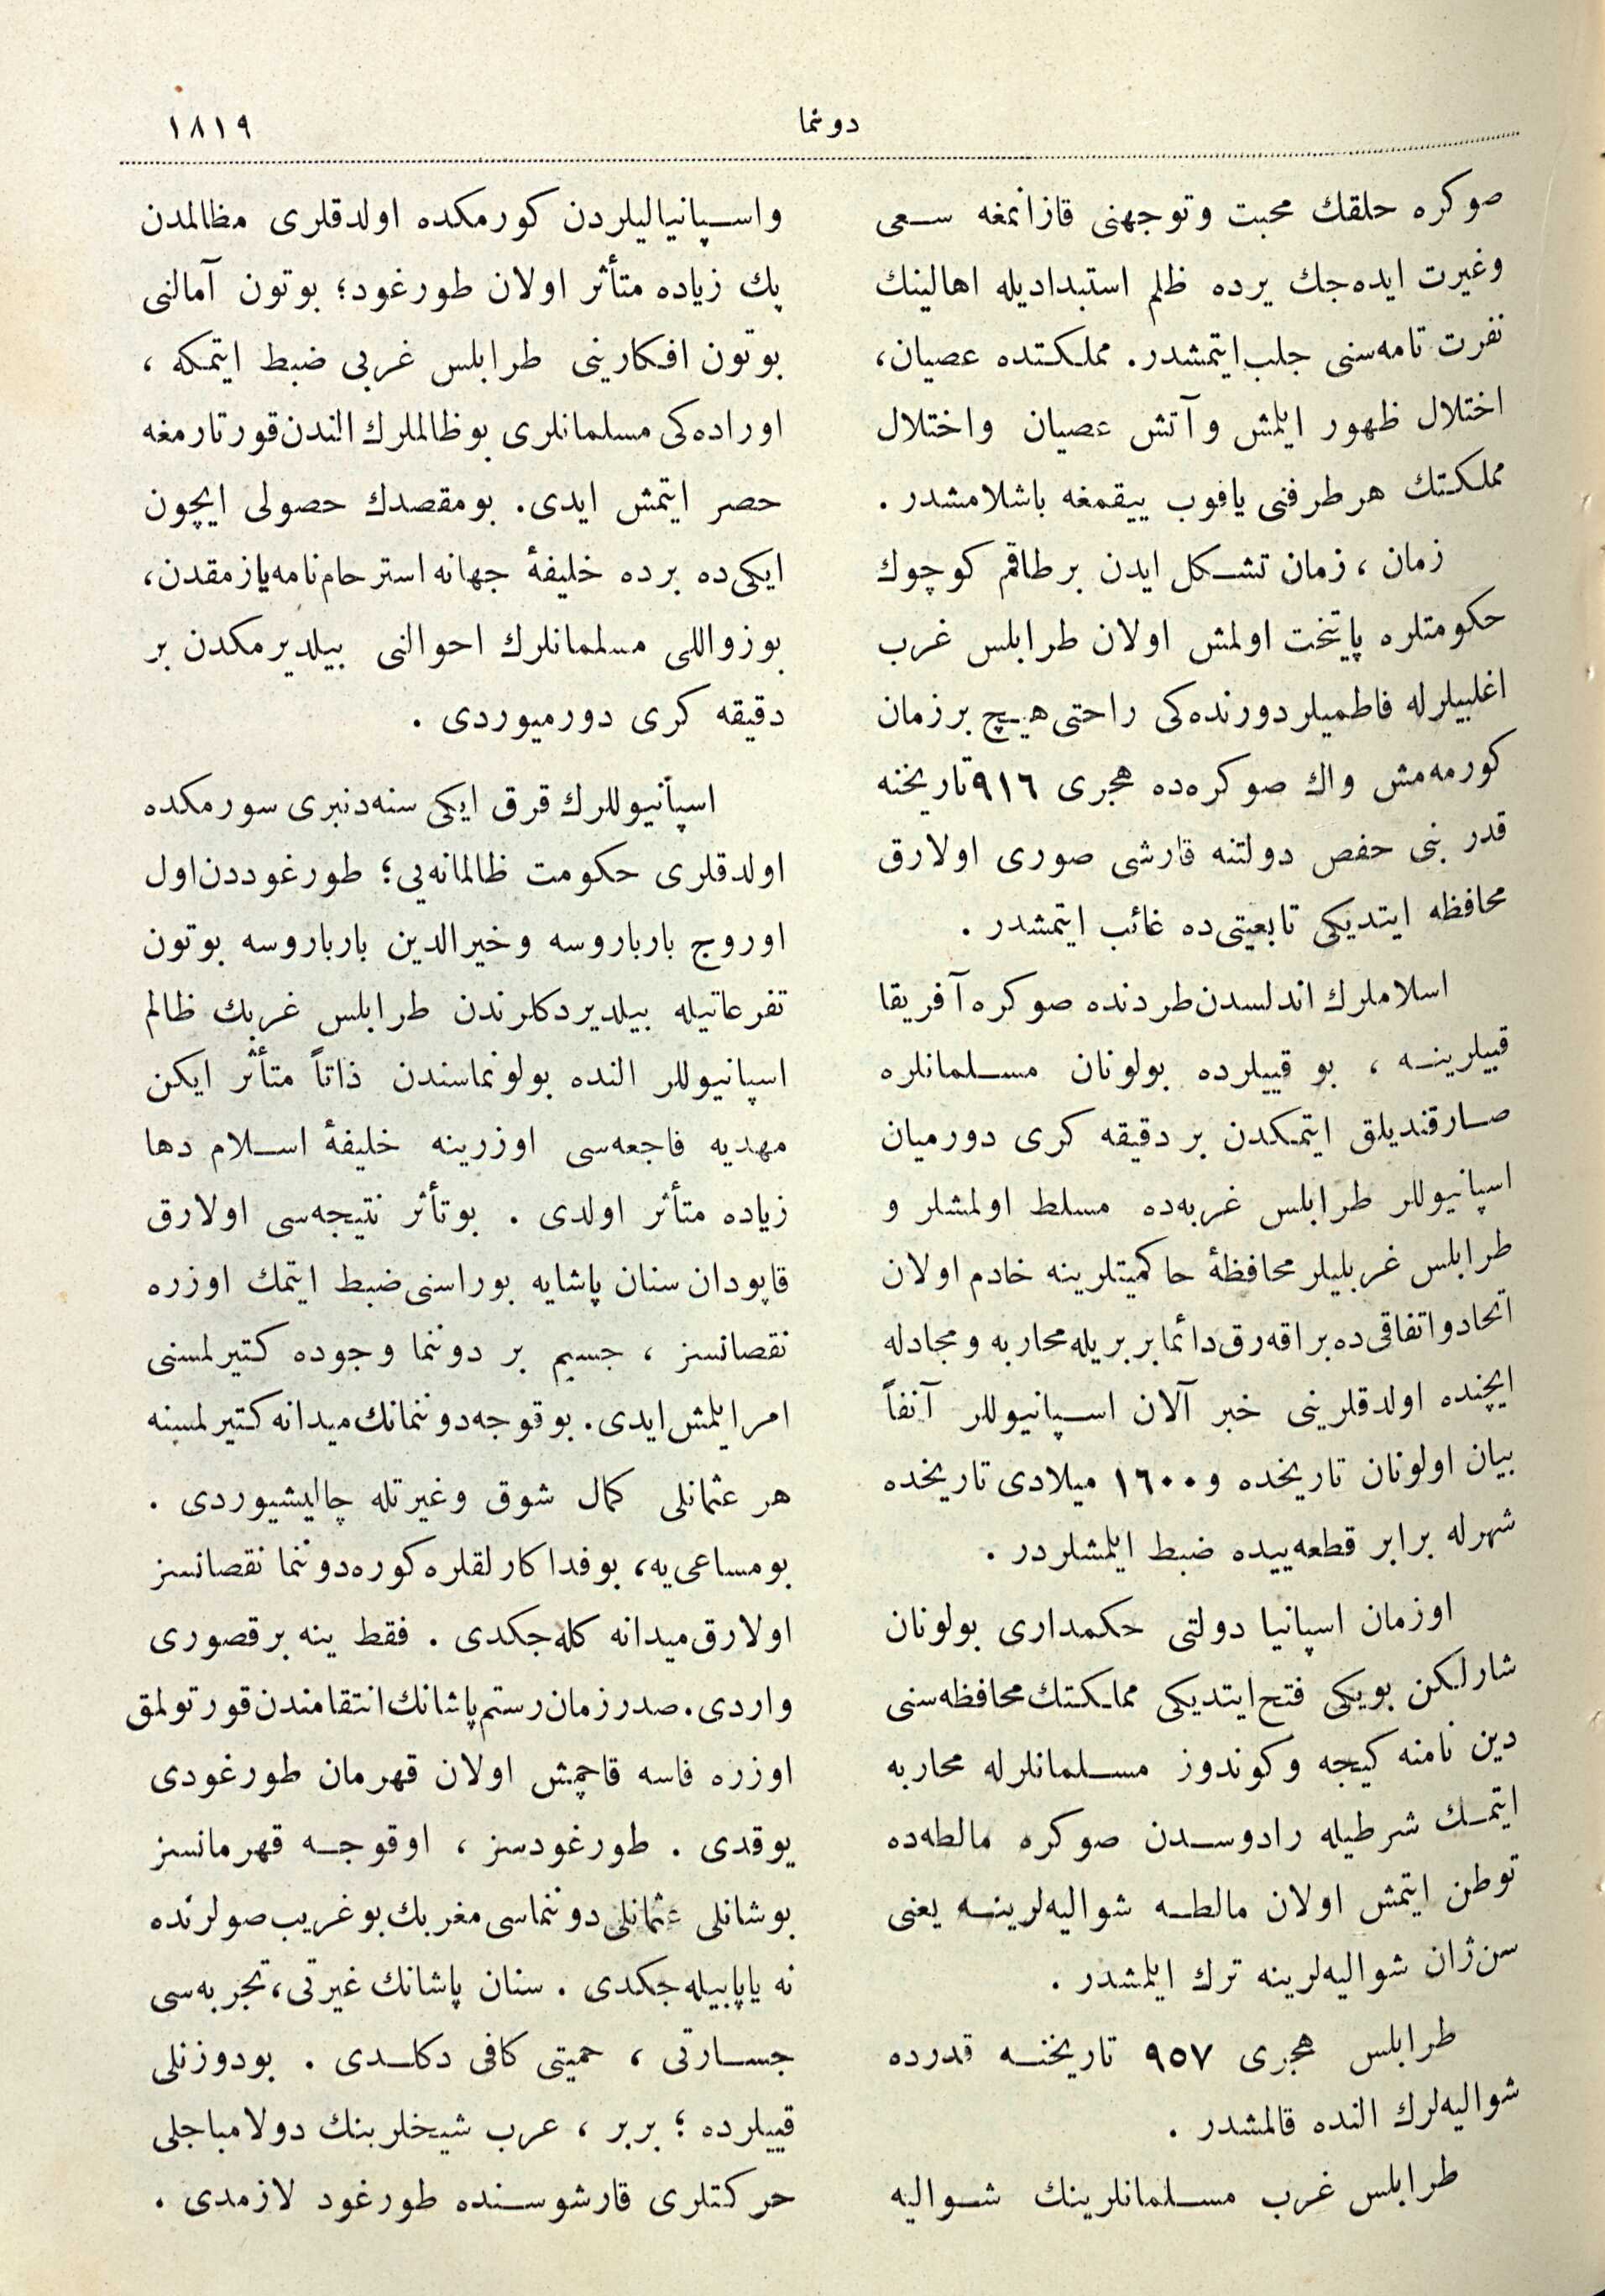 دوننما
١٨١٩
صوكره حلقك محبت وتوجهنی قازانمغه سعی
وغیرت ایده‌جك یرده ظلم استبدادیله اهالینك
نفرت تامه‌سنی جلب ایتمشدر. مملکتده عصیان،
اختلال ظهور ایلمش وآتش عصیان واختلال
مملكتك هر طرفنی یاقوب ییقمغه باشلامشدر.
زمان ، زمان تشکل ایدن بر طاقم كوچوك
حكومتلره پایتخت اولمش اولان طرابلس غرب
اغلبیلرله فاطمیلر دورنده‌کی راحتی هیچ بر زمان
كورمه‌مش واك صوكره‌ده هجری ٩١٦ تاریخنه
قدر بنی حفص دولتنه قارشی صوری اولارق
محافظه ایتدیکی تابعیتی‌ده غائب ایتمشدر .
اسلاملرك اندلسدن طردنده صوکره آفریقا
قییلرینه ، بو قییلرده بولونان مسلمانلره
صارقندیلق ایتمکدن بر دقیقه کری دورمیان
اسپانیوللر طرابلس غربه‌ده مسلط اولمشلر و
طرابلس غربلیلر محافظهٔ حاکمیتلرینه خادم اولان
اتحاد و اتفاقی‌ده براقه‌رق دائما بر بریله محاربه ومجادله
ایچنده اولدقلرینی خبر آلان اسپانیوللر آنفاً
بیان اولونان تاریخده و ١٦٠٠ میلادی تاریخده
شهرله برابر قطعه‌ییده ضبط ایلمشلردر .
اوزمان اسپانیا دولتی حکمداری بولونان
شارلکن بویکی فتح ایتدیکی مملکتك محافظه‌سنی
دین نامنه کیجه وکوندوز مسلمانلرله محاربه
ایتمك شرطیله رادوسدن صوکره مالطه‌ده
توطن ایتمش اولان مالطه شوالیه‌لرینه یعنی
سن‌ژان شوالیه‌لرینه ترك ایلمشدر .
طرابلس هجری ٩٥٧ تاریخنه قدرده
شوالیه‌لرك النده قالمشدر .
طرابلس غرب مسلمانلرینك شوالیه
واسپانیالیلردن کورمکده اولدقلری مظالمدن
پك زیاده متأثر اولان طورغود؛ بوتون آمالنی
بوتون افکارینی طرابلس غربی ضبط ایتمکه ،
اوراده‌کی مسلمانلری بو ظالملرك الندن قورتارمغه
حصر ایتمش ایدی. بومقصدك حصولی ایچون
ایکی‌ده برده خلیفهٔ جهانه استرحام‌نامه یازمقدن،
بوزواللی مسلمانلرك احوالنی بیلدیرمکدن بر
دقیقه کری دورمیوردی .
اسپانیوللرك قرق ایکی سنه‌دنبری سورمکده
اولدقلری حکومت ظالمانه‌یی؛ طورغوددن اول
اوروج بارباروسه وخیرالدین بارباروسه بوتون
تفرعاتیله بیلدیردکلرندن طرابلس غربك ظالم
اسپانیوللر النده بولونماسندن ذاتاً متأثر ایکن
مهدیه فاجعه‌سی اوزرینه خلیفهٔ اسلام دها
زیاده متأثر اولدی . بوتأثر نتیجه‌سی اولارق
قاپودان سنان پاشایه بوراسنی ضبط ایتمك اوزره
نقصانسز ، جسیم بر دوننما وجوده کتیرلمسنی
امر ایلمش ایدی. بوقوجه دوننمانك میدانه کتیرلمسنه
هر عثمانلی کمال شوق وغیرتله چالیشیوردی .
بومساعی‌یه، بوفداکارلقلره کوره دوننما نقصانسز
اولارق میدانه کله‌جکدی . فقط ینه برقصوری
واردی. صدر زمان رستم پاشانك انتقامندن قورتولمق
اوزره فاسه قاچمش اولان قهرمان طورغودی
یوقدی . طورغودسز ، اوقوجه قهرمانسز
بوشانلی عثمانلی دوننماسی مغربك بوغریب صولرنده
نه یاپابیله‌جکدی . سنان پاشانك غیرتی، تجربه‌سی
جسارتی ، حمیتی کافی دکلدی . بودوزنلی
قییلرده ؛ بربر ، عرب شیخلرینك دولامباجلی
حرکتلری قارشوسنده طورغود لازمدی .